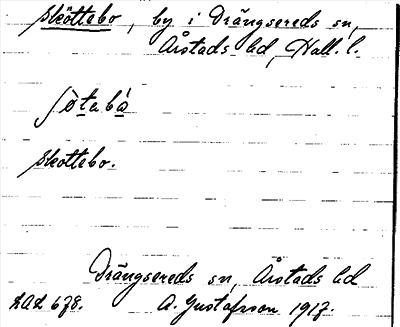 Sköttebo, by i Drängsereds sn,
Årstads hd, Hall. l.
ʃò̱ṯaḇá̱
Skottebo.
Drängsereds sn, Årstads hd
LAL 678. A. Gustafsson 1917.